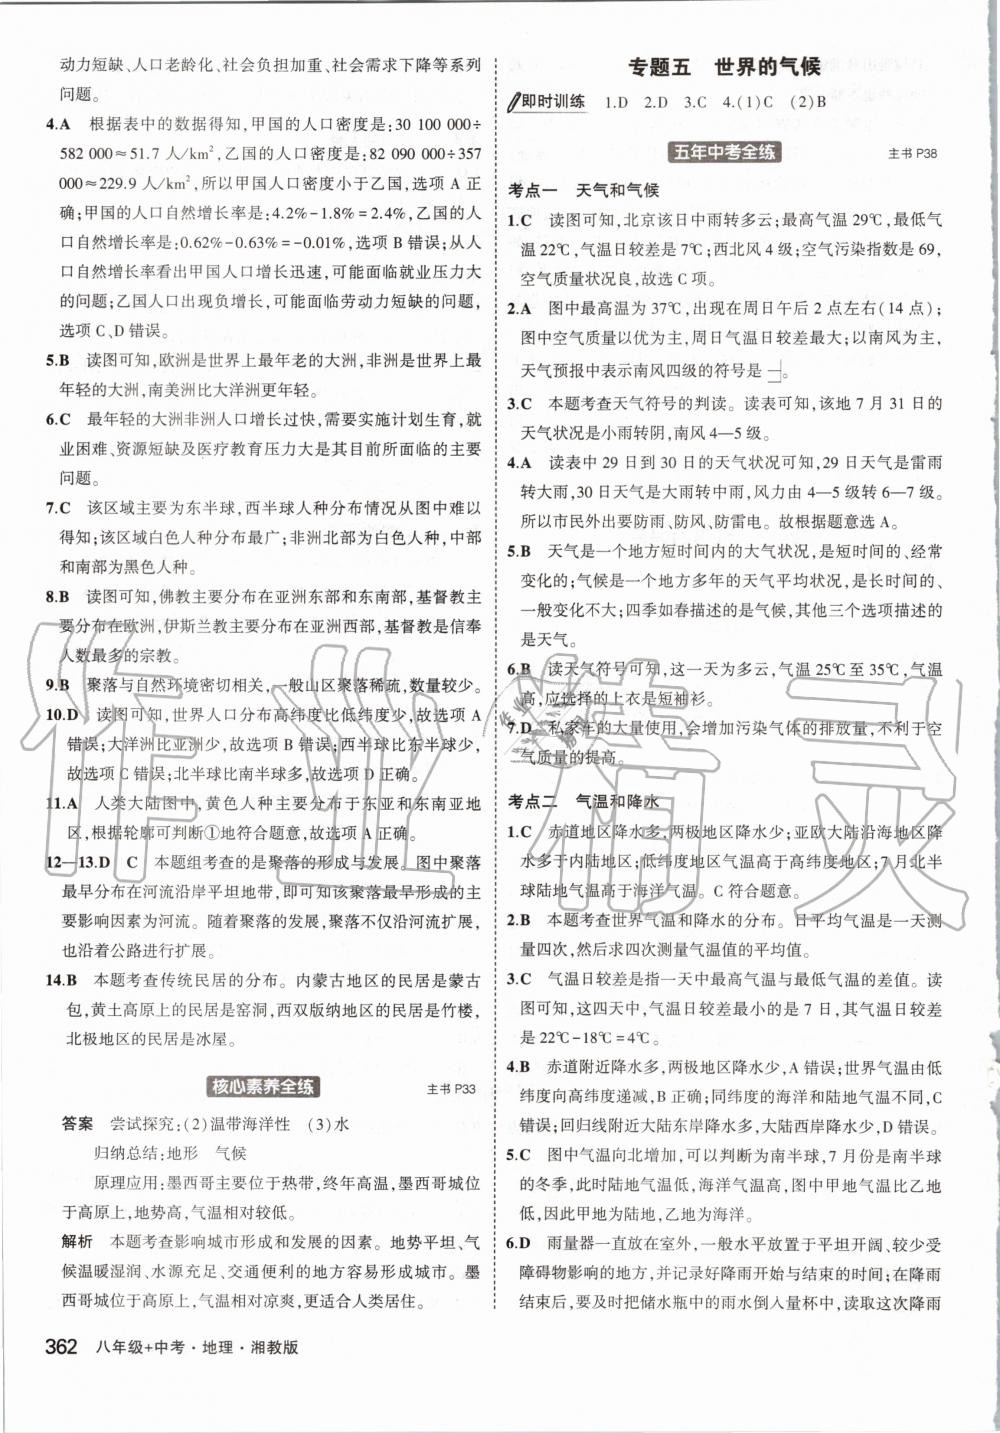 动力短缺、人口老龄化、社会负担加重、社会需求下降等系列
问题。
4.A 根据表中的数据得知,甲国的人口密度是:30 100 000÷
582 000≈51.7 人/km²,乙国的人口密度是:82 090 000÷357
000≈229.9 人/km²,所以甲国人口密度小于乙国,选项 A 正
确;甲国的人口自然增长率是:4.2%-1.8%=2.4%,乙国的人
口自然增长率是:0.62%-0.63%=-0.01%,选项 B 错误;从人
口自然增长率看出甲国人口增长迅速,可能面临就业压力大
的问题;乙国人口出现负增长,可能面临劳动力短缺的问题,
选项 C、D 错误。
5.B 读图可知,欧洲是世界上最年老的大洲,非洲是世界上最
年轻的大洲,南美洲比大洋洲更年轻。
6.C 最年轻的大洲非洲人口增长过快,需要实施计划生育,就
业困难、资源短缺及医疗教育压力大是其目前所面临的主要
问题。
7.C 该区域主要为东半球,西半球人种分布情况从图中难以
得知;该区域白色人种分布最广;非洲北部为白色人种,中部
和南部为黑色人种。
8.B 读图可知,佛教主要分布在亚洲东部和东南部,基督教主
要分布在欧洲,伊斯兰教主要分布在亚洲西部,基督教是信奉
人数最多的宗教。
9.B 聚落与自然环境密切相关,一般山区聚落稀疏,数量较少。
10.D 读图可知,世界人口分布高纬度比低纬度少,故选项 A
错误;大洋洲比亚洲少,故选项 B 错误;西半球比东半球少,
故选项 C 错误;北半球比南半球多,故选项 D 正确。
11.A 人类大陆图中,黄色人种主要分布于东亚和东南亚地
区,根据轮廓可判断①地符合题意,故选项 A 正确。
12—13.D C 本题组考查的是聚落的形成与发展。图中聚落
最早分布在河流沿岸平坦地带,即可知该聚落最早形成的主
要影响因素为河流。随着聚落的发展,聚落不仅沿河流扩展,
也沿着公路进行扩展。
14.B 本题考查传统民居的分布。内蒙古地区的民居是蒙古
包,黄土高原上的民居是窑洞,西双版纳地区的民居是竹楼,
北极地区的民居是冰屋。
核心素养全练 主书 P33
答案 尝试探究:(2)温带海洋性 (3)水
归纳总结:地形 气候
原理应用:墨西哥主要位于热带,终年高温,墨西哥城位
于高原上,地势高,气温相对较低。
解析 本题考查影响城市形成和发展的因素。地势平坦、气
候温暖湿润、水源充足、交通便利的地方容易形成城市。墨
西哥城位于高原上,气温相对凉爽,更适合人类居住。
362 八年级+中考·地理·湘教版
专题五 世界的气候
即时训练 1.D 2.D 3.C 4.(1)C (2)B
五年中考全练 主书 P38
考点一 天气和气候
1.C 读图可知,北京该日中雨转多云;最高气温 29℃,最低气
温 22℃,气温日较差是 7℃;西北风 4 级;空气污染指数是 69,
空气质量状况良,故选 C 项。
2.A 图中最高温为 37℃,出现在周日午后 2 点左右(14 点);
图中空气质量以优为主,周日气温日较差最大;以南风为主,
天气预报中表示南风四级的符号是 。
3.C 本题考查天气符号的判读。读表可知,该地 7 月 31 日的
天气状况是小雨转阴,南风 4—5 级。
4.A 读表中 29 日到 30 日的天气状况可知,29 日天气是雷雨
转大雨,30 日天气是大雨转中雨,风力由 4—5 级转 6—7 级。
所以市民外出要防雨、防风、防雷电。故根据题意选 A。
5.B 天气是一个地方短时间内的大气状况,是短时间的、经常
变化的;气候是一个地方多年的天气平均状况,是长时间的、
一般变化不大;四季如春描述的是气候,其他三个选项描述的
是天气。
6.B 读天气符号可知,这一天为多云,气温 25℃至 35℃,气温
高,应选择的上衣是短袖衫。
7.D 私家车的大量使用,会增加污染气体的排放量,不利于空
气质量的提高。
考点二 气温和降水
1.C 赤道地区降水多,两极地区降水少;亚欧大陆沿海地区降
水多于内陆地区;低纬度地区气温高于高纬度地区;7 月北半
球陆地气温高于海洋气温。C 符合题意。
2.B 本题考查世界气温和降水的分布。日平均气温是一天测
量四次,然后求四次测量气温值的平均值。
3.C 气温日较差是指一天中最高气温与最低气温的差值。读
图可知,这四天中,气温日较差最小的是 7 日,其气温日较差
是 22℃-18℃=4℃。
4.B 赤道附近降水多,两极地区降水少,A 错误;世界气温由低
纬度向高纬度递减,B 正确;同纬度的海洋和陆地气温不同,C
错误;回归线附近大陆东岸降水多,大陆西岸降水少,D 错误。
5.C 图中气温向北增加,可以判断为南半球,7 月份是南半球
的冬季,此时陆地气温低,海洋气温高,图中甲地气温比乙地
低,因此甲地为陆地,乙地为海洋。
6.D 雨量器一直放在室外,一般水平放置于平坦开阔、较少受
障碍物影响的地方,并记录好降雨开始与结束的时间;在降雨
结束后,要及时把储水瓶中的雨水倒入量杯中,读取这次降雨
作业精灵